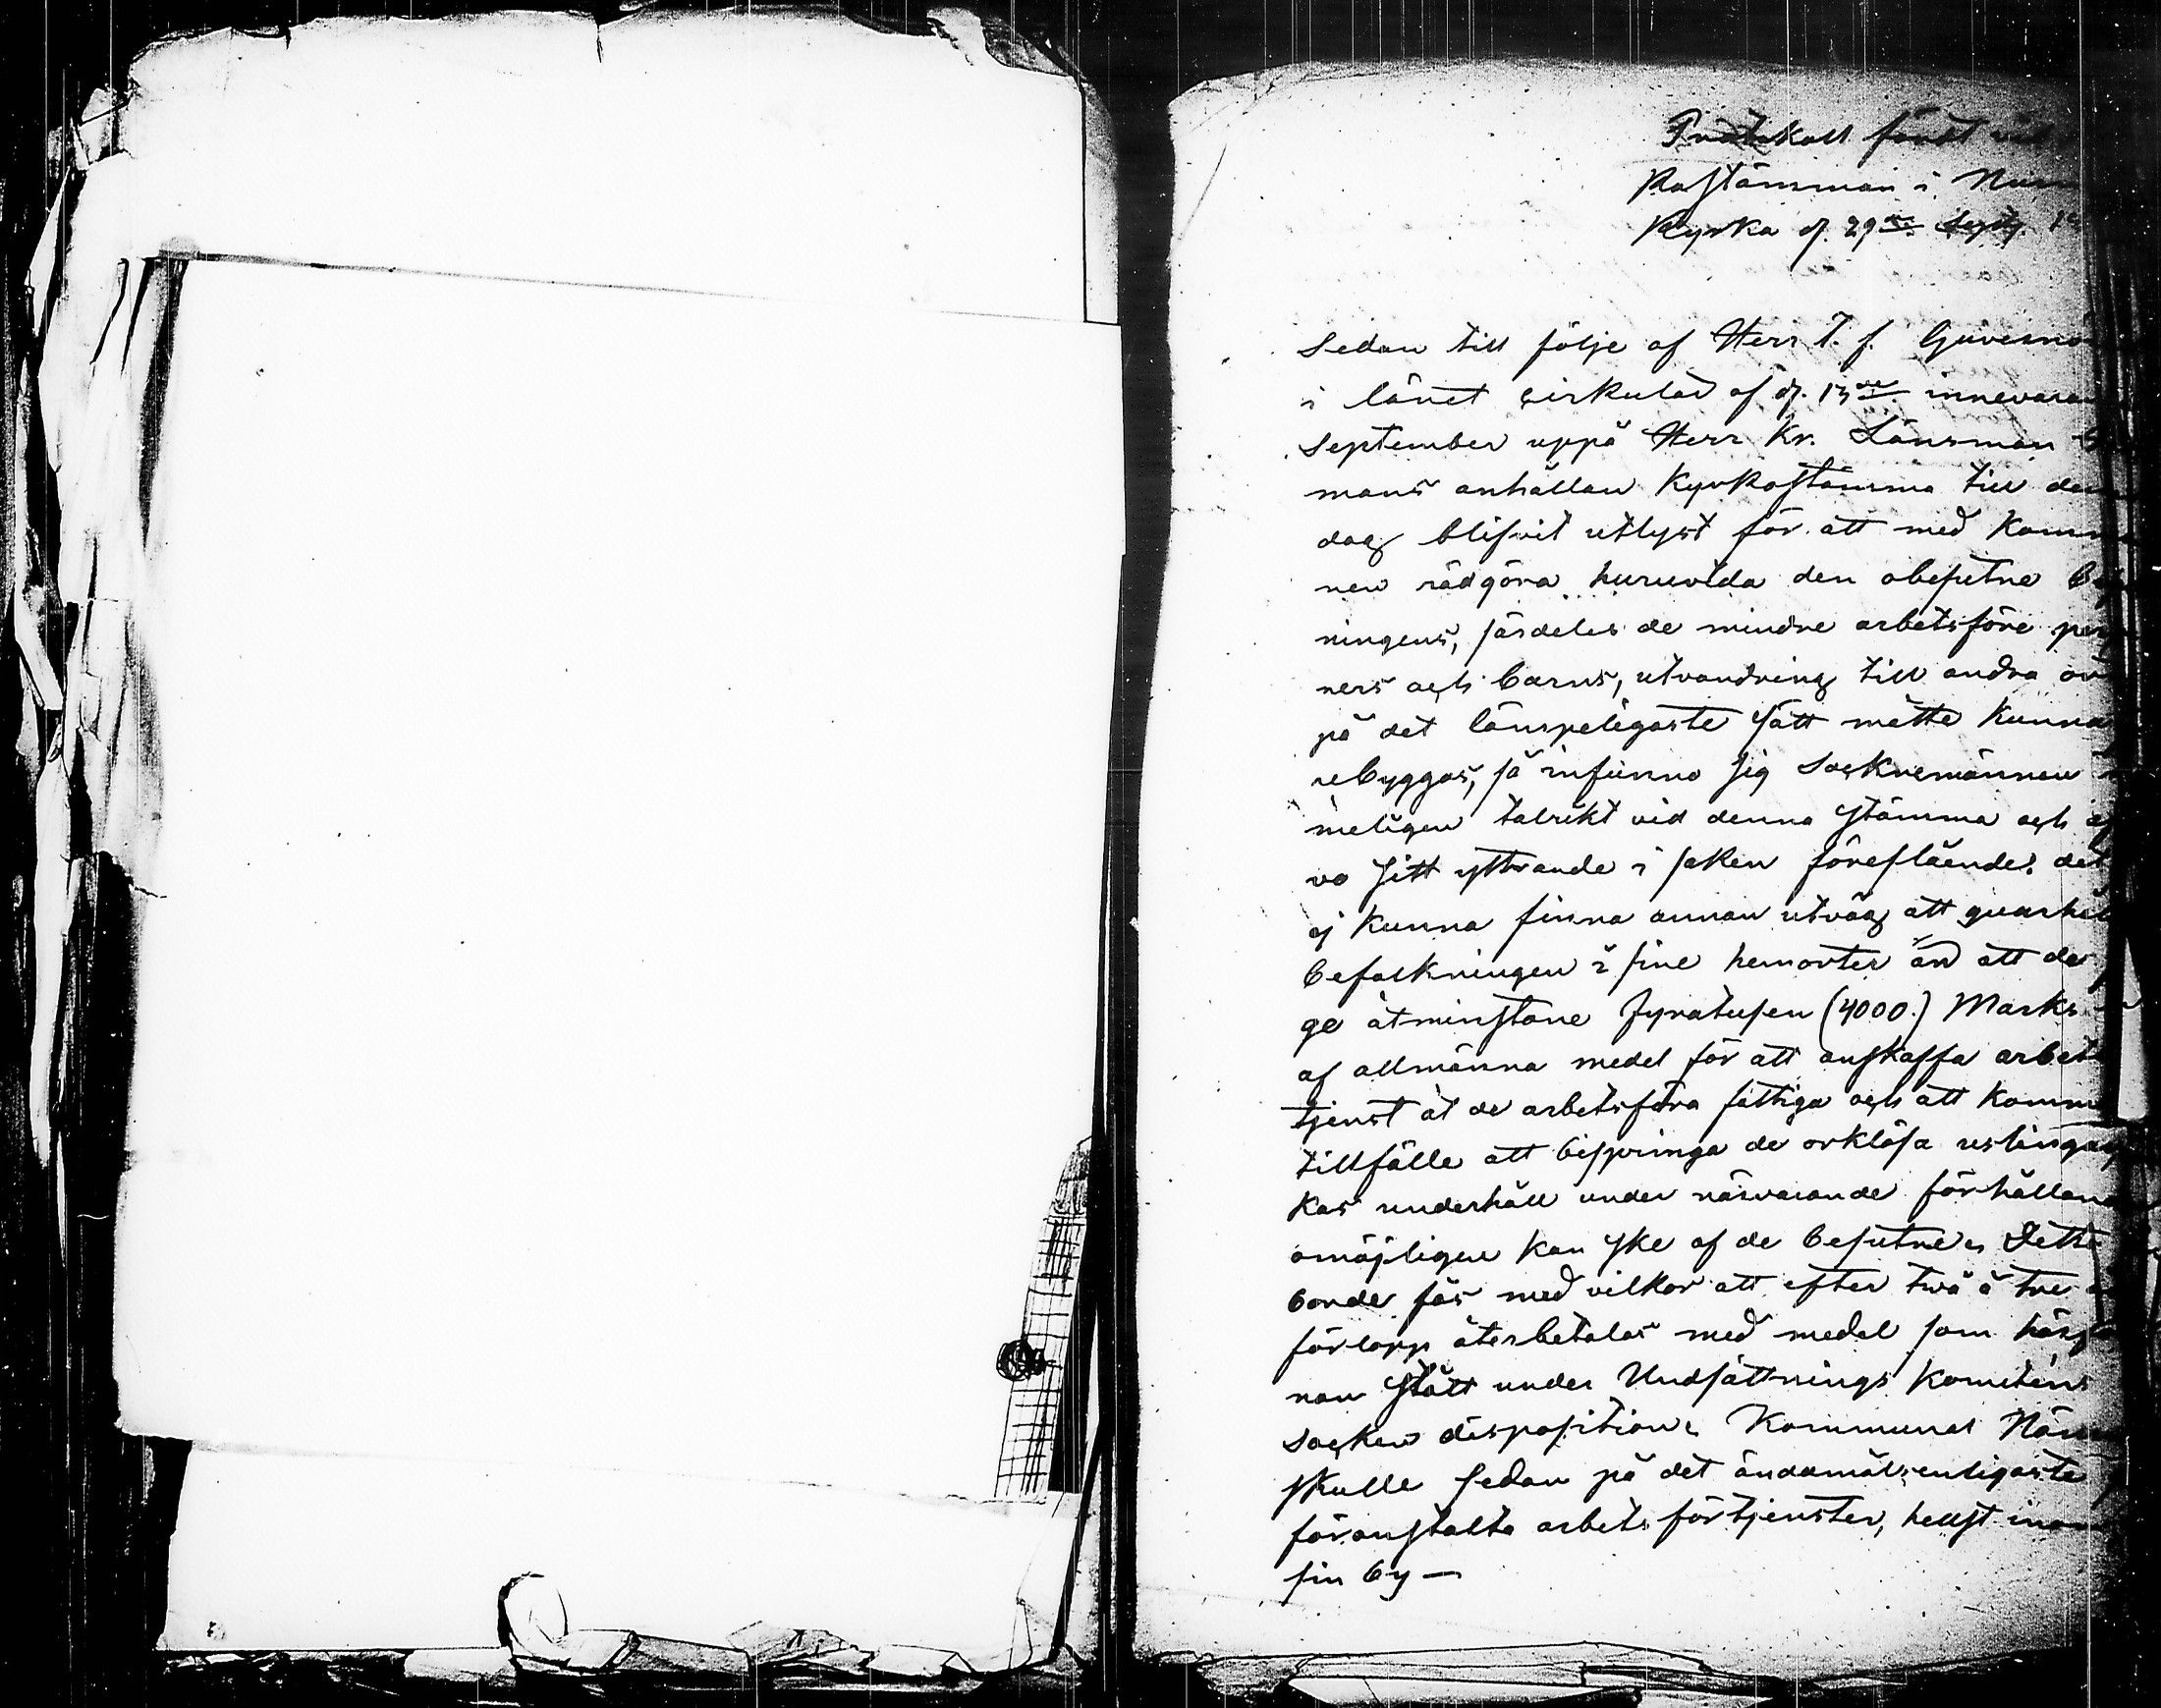 Protokoll fördt vid
kostämman i Num
Kyrka d. 29de Septr 18
Sedan till följe af Herr t. f. Guvernö
i länet cirkulär af d. 13de innevaran
September uppå Herr Kr. Länsman
mans anhållan Kyrkostämma till den
dag blifvit utlyst för att med Kommu
nen rådgöra huruvida den obesutne bef
ningens, särdeles de mindre arbetsföre per
ners och barns, utvandring till andra or
på det lämpeligaste sätt måtte kunna
rebyggas, så infunno sig Socknemännen
meligen talrikt vid denna stämma och
vo sitt yttrande i saken föreslående: det
ej kunna finna annan utväg att quarhål
befolkningen i sine hemorter än att der
ge åtminstone fyratusen (4000.) Mark
af allmänna medel för att anskaffa arbets
tjenst åt de arbetsföra fattiga och att komm
tillfälle att bispringa de orklösa uslingar
kas underhåll under närvarande förhållan
omöjligen kan ske af de besutne. Detta
borde fås med vilkor att efter två à tre
förlopp återbetalas med medel som här
nan stått under Undsättnings Komiténs
Socken disposition. Kommunal Näm
skulle sedan på det ändamålsenligaste
föranstalta arbetsförtjenster, helst inom
sin by —